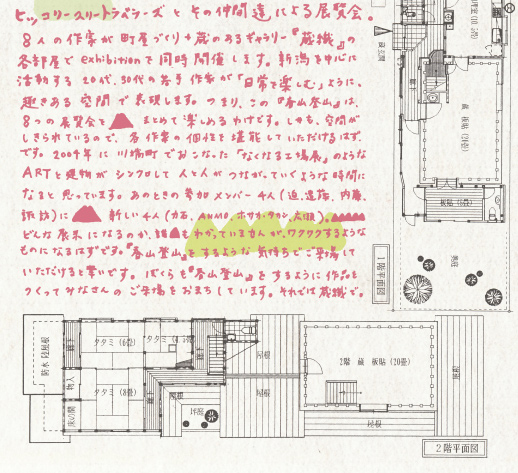 ヒッコリースリートラベラーズ と その仲間達による展覧会。
8人の作家が町屋づくり+蔵のあるギャラリー『蔵織』の
各部屋で exhibitionを同時開催します。新潟を中心に
活動する 20代、30代の若手作家が「日常を楽しむ」ように、
趣きある空間で表現します。つまり、この『春山登山』は、
8つの展覧会を まとめて楽しめるわけです。しかも、空間が
しきられているので、各作家の個性を堪能していただけるはず
です。2004年に川端町でおこなった『なくなる工場展』のような
ARTと建物がシンクロして人と人がつながっていくような時間に
なると思っています。あのときの参加メンバー4人(迫、遠藤、内藤、
諏訪)に 新しい4人
どんな展示になるのか、誰もわかっていませんが、ワクワクするような
ものになるはずです。『春山登山』をするような気持ちでご来場して
いただけると幸いです。ぼくらも『春山登山』をするように作品を
つくってみなさんのご来場をおまちしています。それでは蔵織で。
蔵 板貼(20畳)
板貼
1階平面図
防水 陸屋根
タタミ(6畳)
物入
床の間
タタミ(8畳)
屋根
屋根
2階 蔵 板貼(20畳)
屋根
屋根
2階平面図